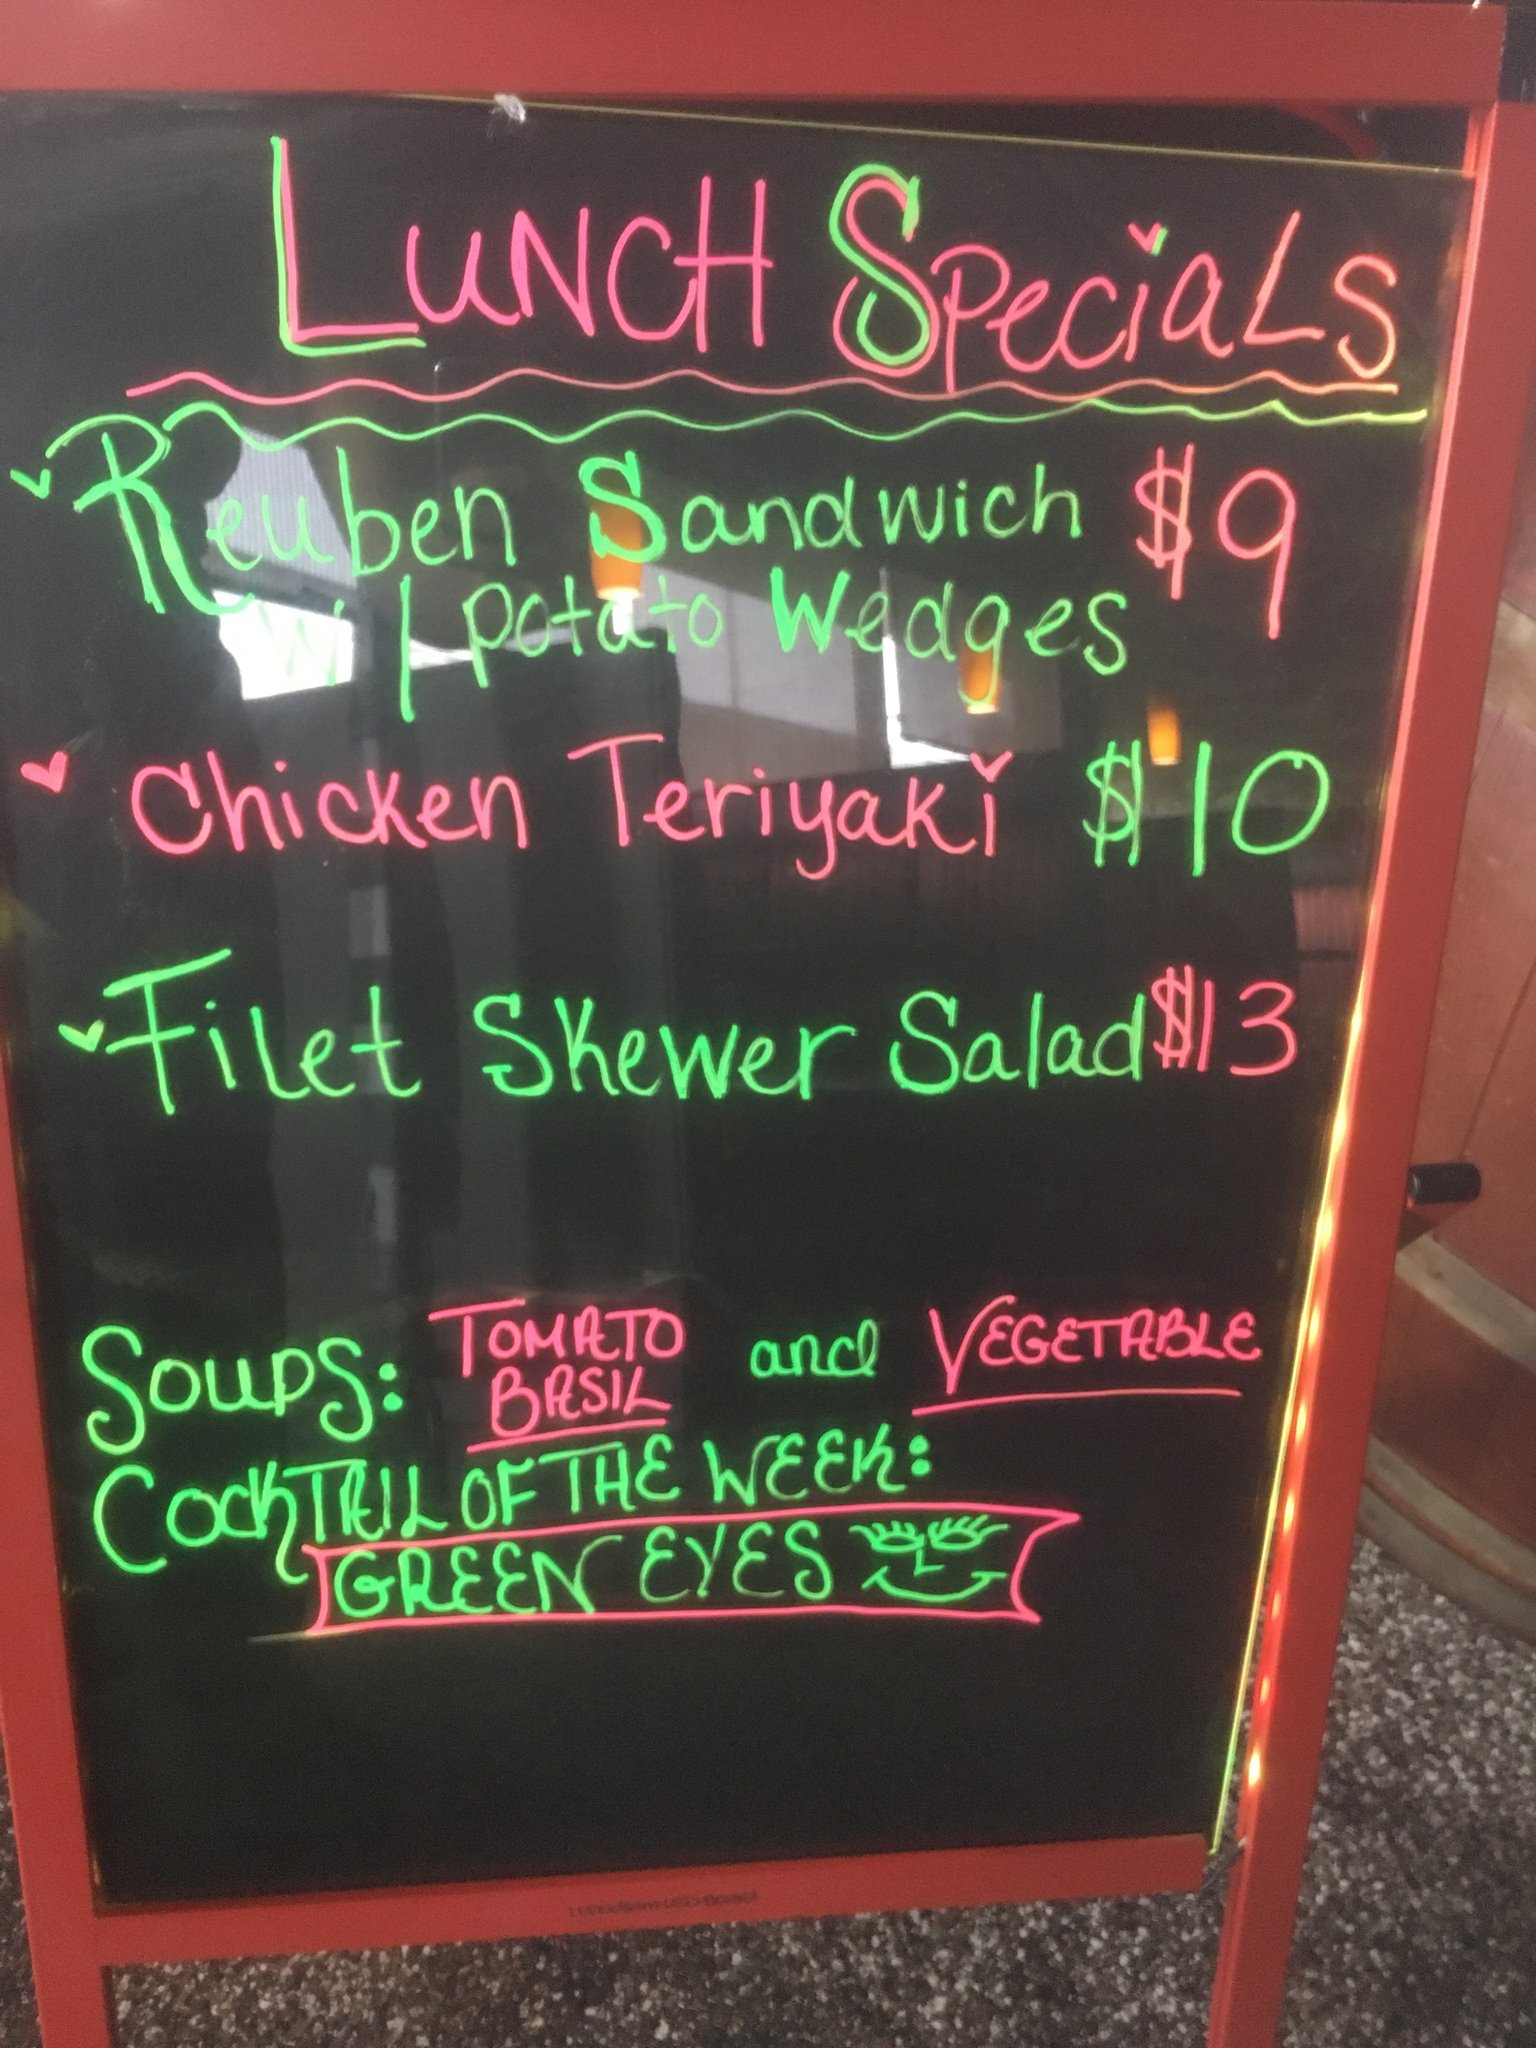 LUNCH SPeciaLS
Reuben Sandwich $9
w/ potato Wedges
Chicken Teriyaki $10
Filet Skewer Salad $13
Soups: TOMATO BASIL and VEGETABLE
COCKTAIL OF THE WEEK:
GREEN EYES